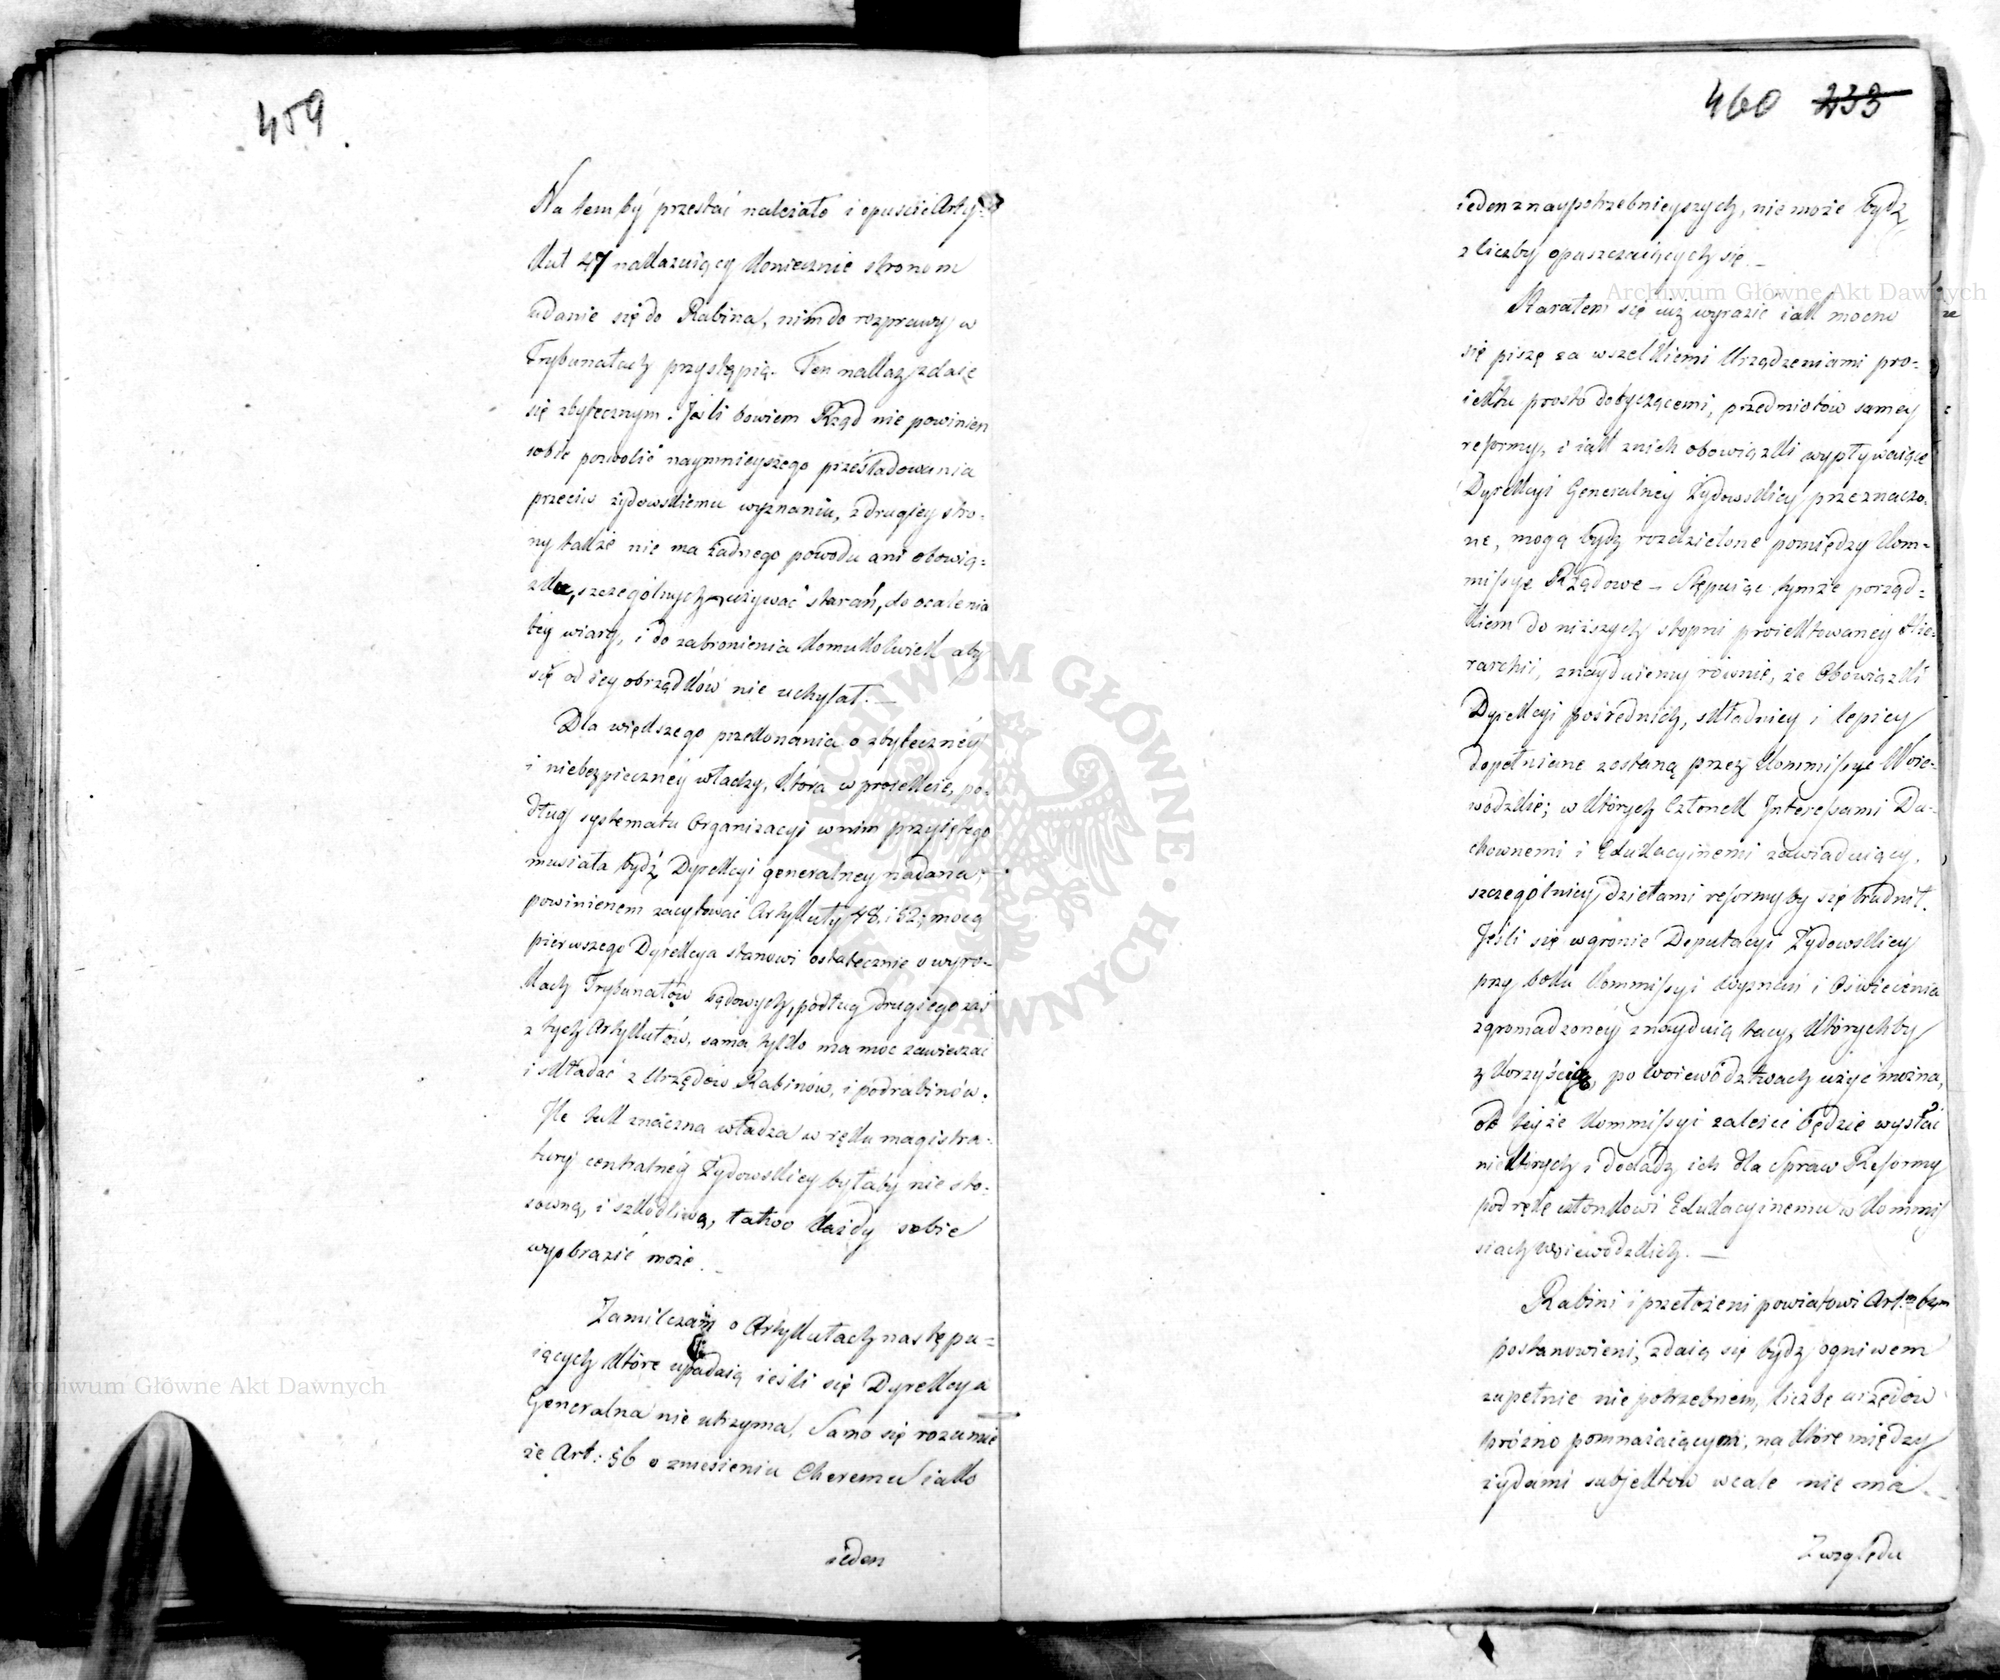 459
Na tem by przestać należało i opuścić Arty-
kuł 47 nakazuiący koniecznie stronom
udanie się do Rabina, nim do rozprawy w
Trybunałach przystąpią. Ten nakaz zdaie
się zbytecznym. Jeśli bowiem Rząd nie powinien
sobie pozwolić naymnieyszego prześladowania
przeciw żydowskiemu wyznaniu, z drugiey stro-
ny także nie ma żadnego powodu ani obowią-
zku, szczególnych używać starań, do ocalenia
tey wiary, i do zabronienia komukolwiek aby
się od iey obrządków nie uchylał. —
Dla większego przekonania o zbyteczney
i niebezpieczney władzy, która w proiekcie, po-
dług systematu Organizacyi w nim przyiętego
musiała bydź Dyrekcyi generalney nadana,
powinienem zacytować Artykuły 48. i 52; mocą
pierwszego Dyrekcya stanowi ostatecznie o wyro-
kach Trybunałów sądowych, podług drugiego zaś
z tych Artykułów, sama tylko ma moc zawieszać
i składać z Urzędów Rabinów, i podrabinów.
Ile tak znaczna władza w ręku magistra-
tury centralney Żydowskiey byłaby nie sto-
sowną, i szkodliwą, łatwo każdy sobie
wyobrazić może.
Zamilczam o Artykułach następu-
iących które upadaią ieśli się Dyrekcya
Generalna nie utrzyma. Samo się rozumie
że Art: 56 o zniesieniu Cheremu iako
ieden
460 233
ieden z naypotrzebnieyszych, nie może bydz
z liczby opuszczaiących się. —
Starałem się iuż wyrazić iak mocno
się piszę za wszelkiemi Urządzeniami pro-
iektu prosto dotyczącemi, przedmiotów samey
reformy, i iak z nich obowiązki wypływaiące
Dyrekcyi Generalney Żydowskiey przeznaczo-
ne, mogą bydz rozdzielone pomiędzy Kom-
missye Rządowe — Stępuiąc tymże porząd-
kiem do niższych stopni proiektowaney Hie-
rarchii, znayduiemy równie, że Obowiązki
Dyrekcyi pośrednich, składniey i lepiey
dopełniane zostaną przez Kommissye Woie-
wodzkie; w których Członek Interessami Du-
chownemi i Edukacyinemi zawiaduiący,
szczególniey dziełami reformy by się trudnił.
Jeśli się w gronie Deputacyi Żydowskiey
przy boku Kommissyi Wyznań i Oświecenia
zgromadzoney znayduią tacy, których by
z korzyścią po woiewództwach użyć można,
od teyże Kommissyi zależeć będzie wysłać
niektórych i dodadz ich dla Spraw Reformy
pod rękę członkowi Edukacyinemu w Kommis
siach Woiewódzkich. —
Rabini i przełożeni powiatowi Art.m 6ym
postanowieni, zdaią się bydz ogniwem
zupełnie niepotrzebnem, liczbę urzędów
próżno pomnażaiącym, na które między
żydami subjektów wcale nie ma —
Z względu
Archiwum Główne Akt Dawnych
Archiwum Główne Akt Dawnych
ARCHIWUM GŁÓWNE AKT DAWNYCH